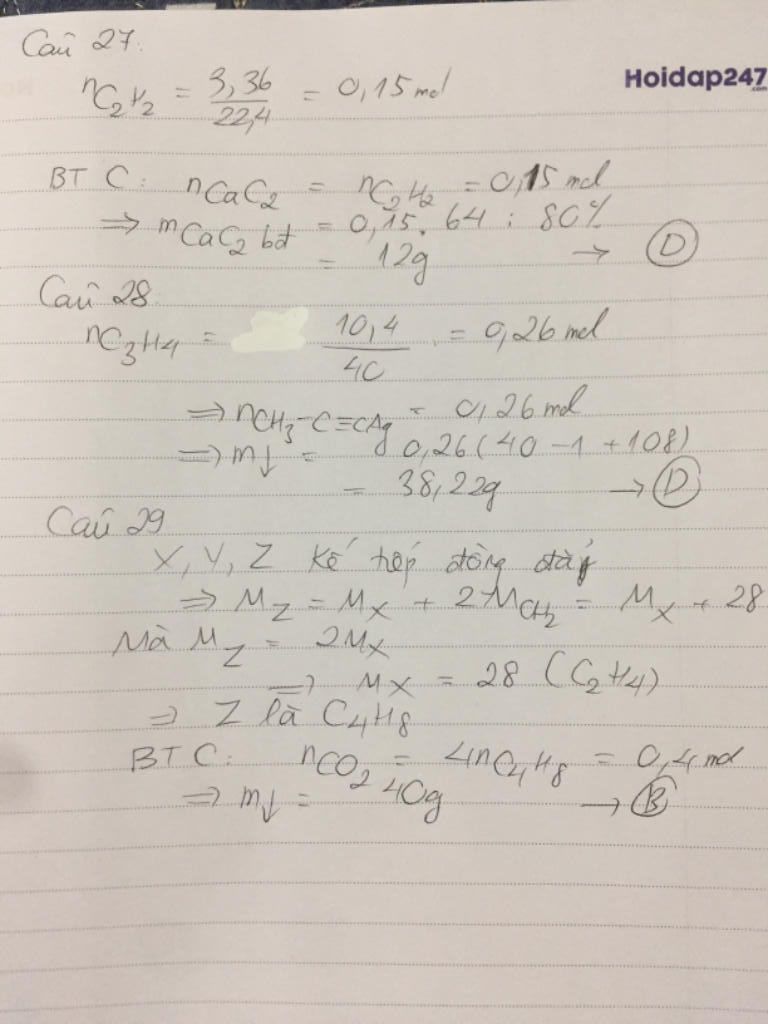 Câu 27:
Hoidap247
.com
nC2H2 = 3,36/22,4 = 0,15 mol
BT C: nCaC2 = nC2H2 = 0,15 mol
⇒ mCaC2 bđ = 0,15. 64 : 80%
= 12g → D
Câu 28
nC3H4 = 10,4/40 = 0,26 mol
⇒ nCH3-C≡CAg = 0,26 mol
⇒ m↓ = 0,26(40 - 1 + 108)
= 38,22g → D
Câu 29
X, Y, Z kế tiếp đồng đẳng
⇒ MZ = MX + 2MCH2 = MX + 28
Mà MZ = 2MX
⇒ MX = 28 (C2H4)
⇒ Z là C4H8
BT C: nCO2 = 4nC4H8 = 0,4 mol
⇒ m↓ = 40g → B